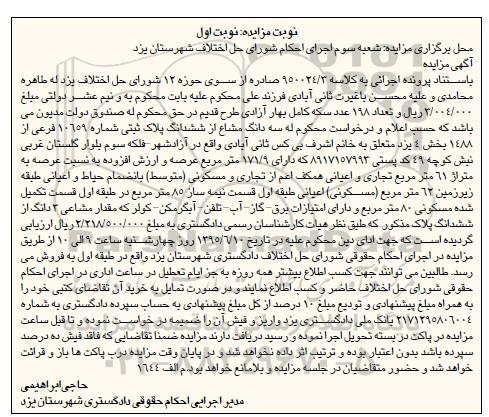 نوبت مزایده: نوبت اول
محل برگزاری مزایده: شعبه سوم اجرای احکام شورای حل اختلاف شهرستان یزد
آگهی مزایده
باستناد پرونده اجرائی به کلاسه ۹۵۰۰۲۴/۳ صادره از سوی حوزه ۱۲ شورای حل اختلاف یزد له طاهره
محامدی و علیه محسن باغیرت ثانی آبادی فرزند علی محکوم علیه بابت محکوم به و نیم عشر دولتی مبلغ
۳/۰۰۴/۰۰۰ ریال و تعداد ۱۹۸ عدد سکه کامل بهار آزادی طرح قدیم در حق محکوم له صندوق دولت مدیون می
باشد که حسب اعلام و درخواست محکوم له سه دانگ مشاع از ششدانگ پلاک ثبتی شماره ۱۰۶۵۹ فرعی از
۱۴۸۸ بخش ۴ یزد متعلق به خانم اشرف بی کس ثانی آبادی واقع در آزادشهر-فلکه سوم بلوار گلستان غربی
نبش کوچه ۴۹ کد پستی ۸۹۱۷۱۵۷۹۹۳ که دارای ۱۷۱/۹ متر مربع عرصه و ارزش افزوده به نسبت عرصه به
متراژ ۶۱ متر مربع تجاری و اعیانی همکف اعم از تجاری و مسکونی (متوسط) بانضمام حیاط و اعیانی طبقه
زیرزمین ۶۲ متر مربع (مسکونی) اعیانی طبقه اول قسمت نیمه ساز ۸۵ متر مربع در طبقه اول قسمت تکمیل
شده مسکونی ۸۰ متر مربع و دارای امتیازات برق-گاز-آب-تلفن-آبگرمکن-کولر که مقدار مشاعی ۳ دانگ از
ششدانگ پلاک مذکور که طبق نظر هیات کارشناسان رسمی دادگستری به مبلغ ۲/۲۱۸/۵۰۰/۰۰۰ ریال ارزیابی
گردیده است که جهت ادای دین محکوم علیه در تاریخ ۱۳۹۵/۶/۱۰ روز چهارشنبه ساعت ۹ الی ۱۰ از طریق
مزایده در اجرای احکام حقوقی شورای حل اختلاف دادگستری شهرستان یزد واقع در طبقه اول به فروش می
رسد. طالبین می توانند جهت کسب اطلاع بیشتر همه روزه به جز ایام تعطیل در ساعت اداری در اجرای احکام
حقوقی شورای حل اختلاف حاضر و کسب اطلاع نمایند و در صورت تمایل به خرید آن تقاضای کتبی خود را
به همراه مبلغ پیشنهادی و تودیع مبلغ ۱۰ درصد از کل مبلغ پیشنهادی به حساب سپرده دادگستری به شماره
۲۱۷۱۲۹۵۸۰۶۰۰۴ بانک ملی دادگستری یزد واریز و فیش آن را ضمیمه درخواست نموده و تا قبل ساعت
مزایده در پاکت در بسته تحویل اجرا نموده و رسید دریافت دارند مزایده ضمنا تقاضایی که فاقد فیش ده درصد
سپرده باشد بدون اعتبار بوده و ترتیب اثر داده نخواهد شد و در پایان وقت مزایده درب پاکت ها باز و قرائت
خواهد شد و حضور متقاضیان در جلسه مزایده و بلامانع خواهد بود.م الف ۱۶۴۴
حاجی ابراهیمی
مدیر اجرایی احکام حقوقی دادگستری شهرستان یزد